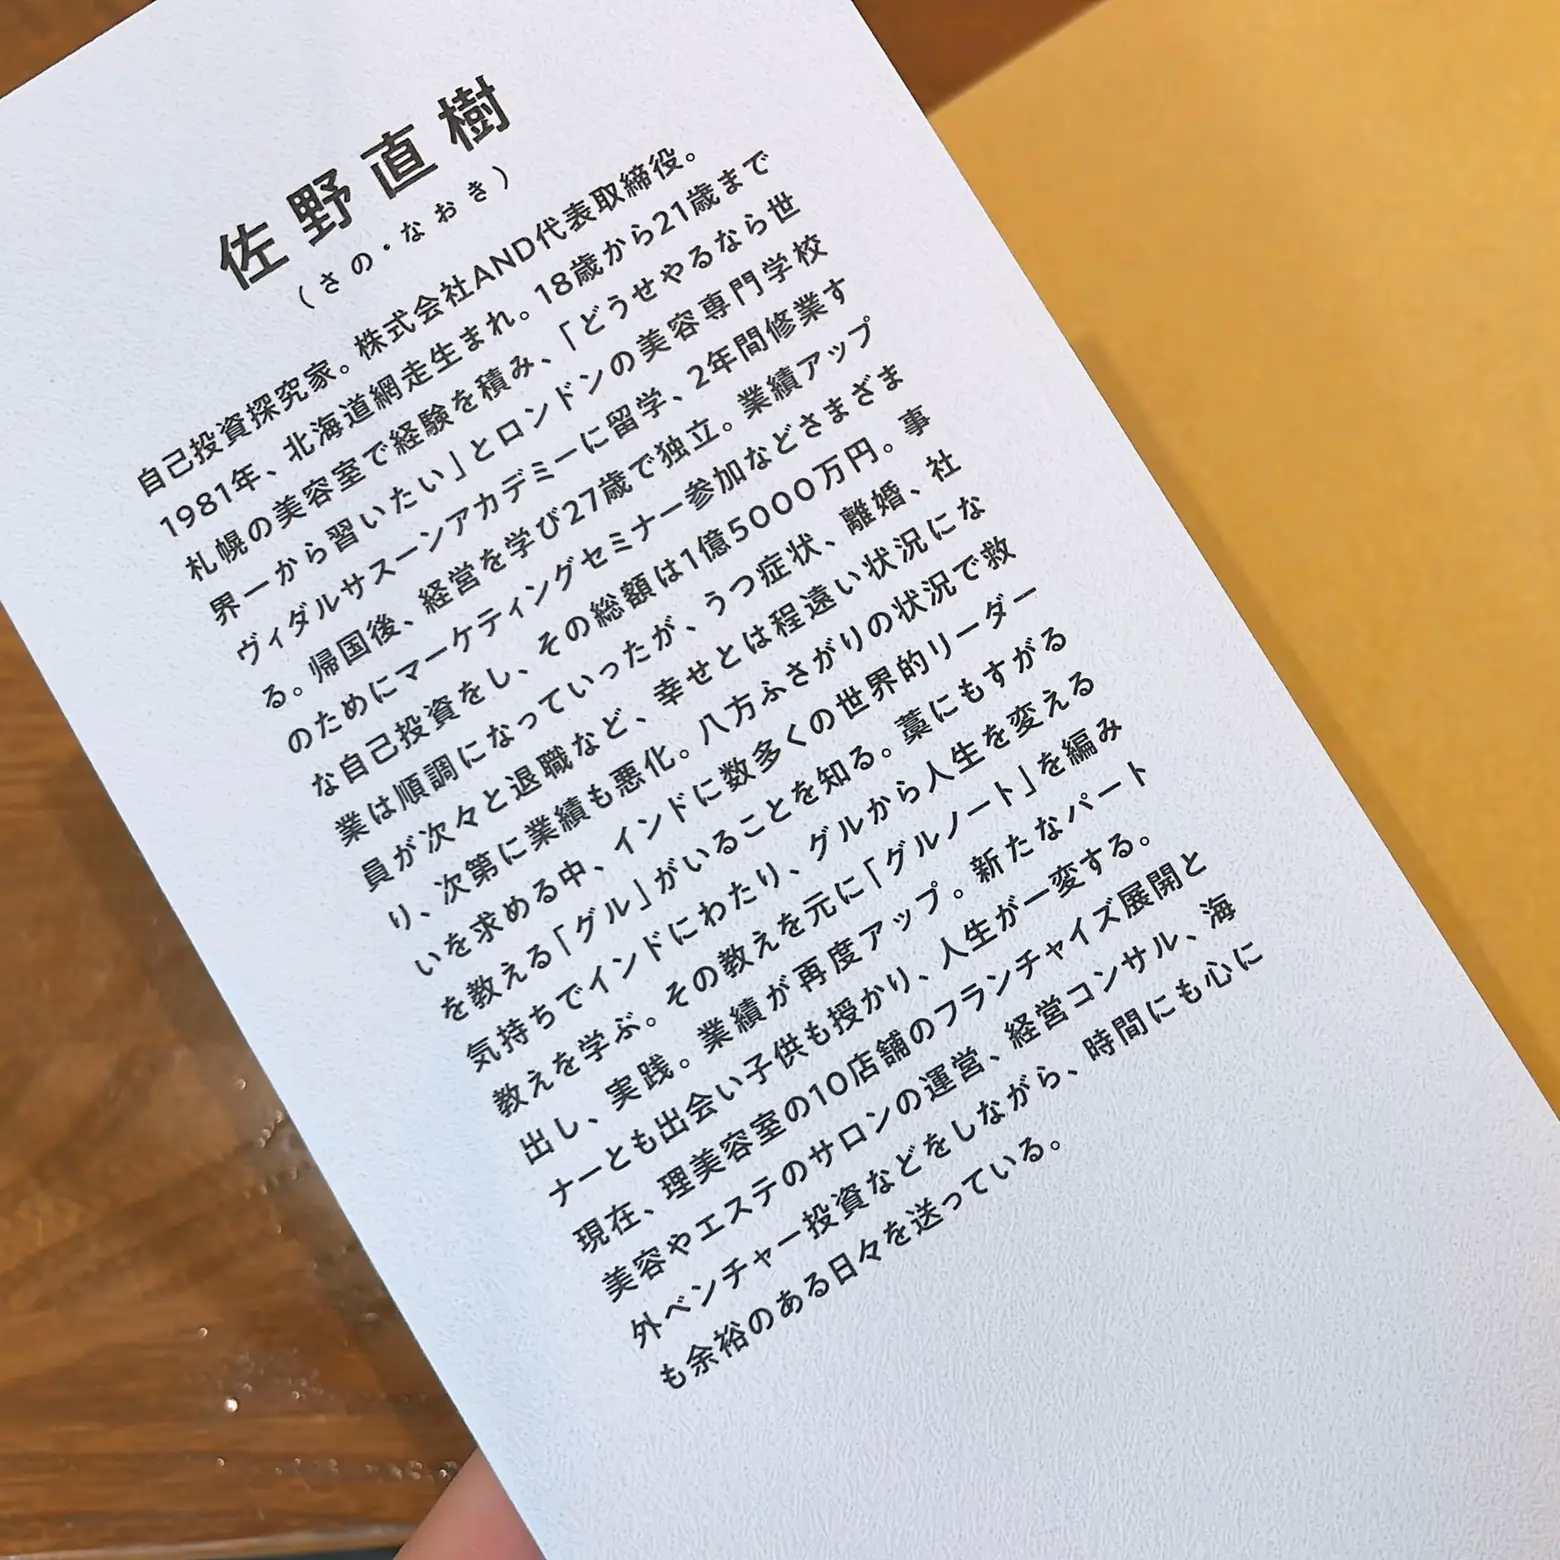 佐野直樹
(さの・なおき)
自己投資探究家。株式会社AND代表取締役。
1981年、北海道網走生まれ。18歳から21歳まで
札幌の美容室で経験を積み、「どうせやるなら世
界一から習いたい」とロンドンの美容専門学校
ヴィダルサスーンアカデミーに留学、2年間修業す
る。帰国後、経営を学び27歳で独立。業績アップ
のためにマーケティングセミナー参加などさまざま
な自己投資をし、その総額は1億5000万円。事
業は順調になっていったが、うつ症状、離婚、社
員が次々と退職など、幸せとは程遠い状況にな
り、次第に業績も悪化。八方ふさがりの状況で救
いを求める中、インドに数多くの世界的リーダー
を教える「グル」がいることを知る。藁にもすがる
気持ちでインドにわたり、グルから人生を変える
教えを学ぶ。その教えを元に「グルノート」を編み
出し、実践。業績が再度アップ。新たなパート
ナーとも出会い子供も授かり、人生が一変する。
現在、理美容室の10店舗のフランチャイズ展開と
美容やエステのサロンの運営、経営コンサル、海
外ベンチャー投資などをしながら、時間にも心に
も余裕のある日々を送っている。